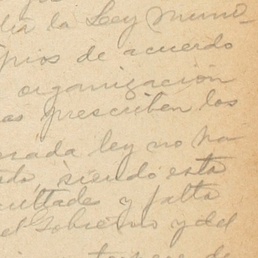 la Ley muni-
pios de acuerdo
organización
prescriben los
ley no ha
siendo esta
cultades y falta
el Gobierno y del
de